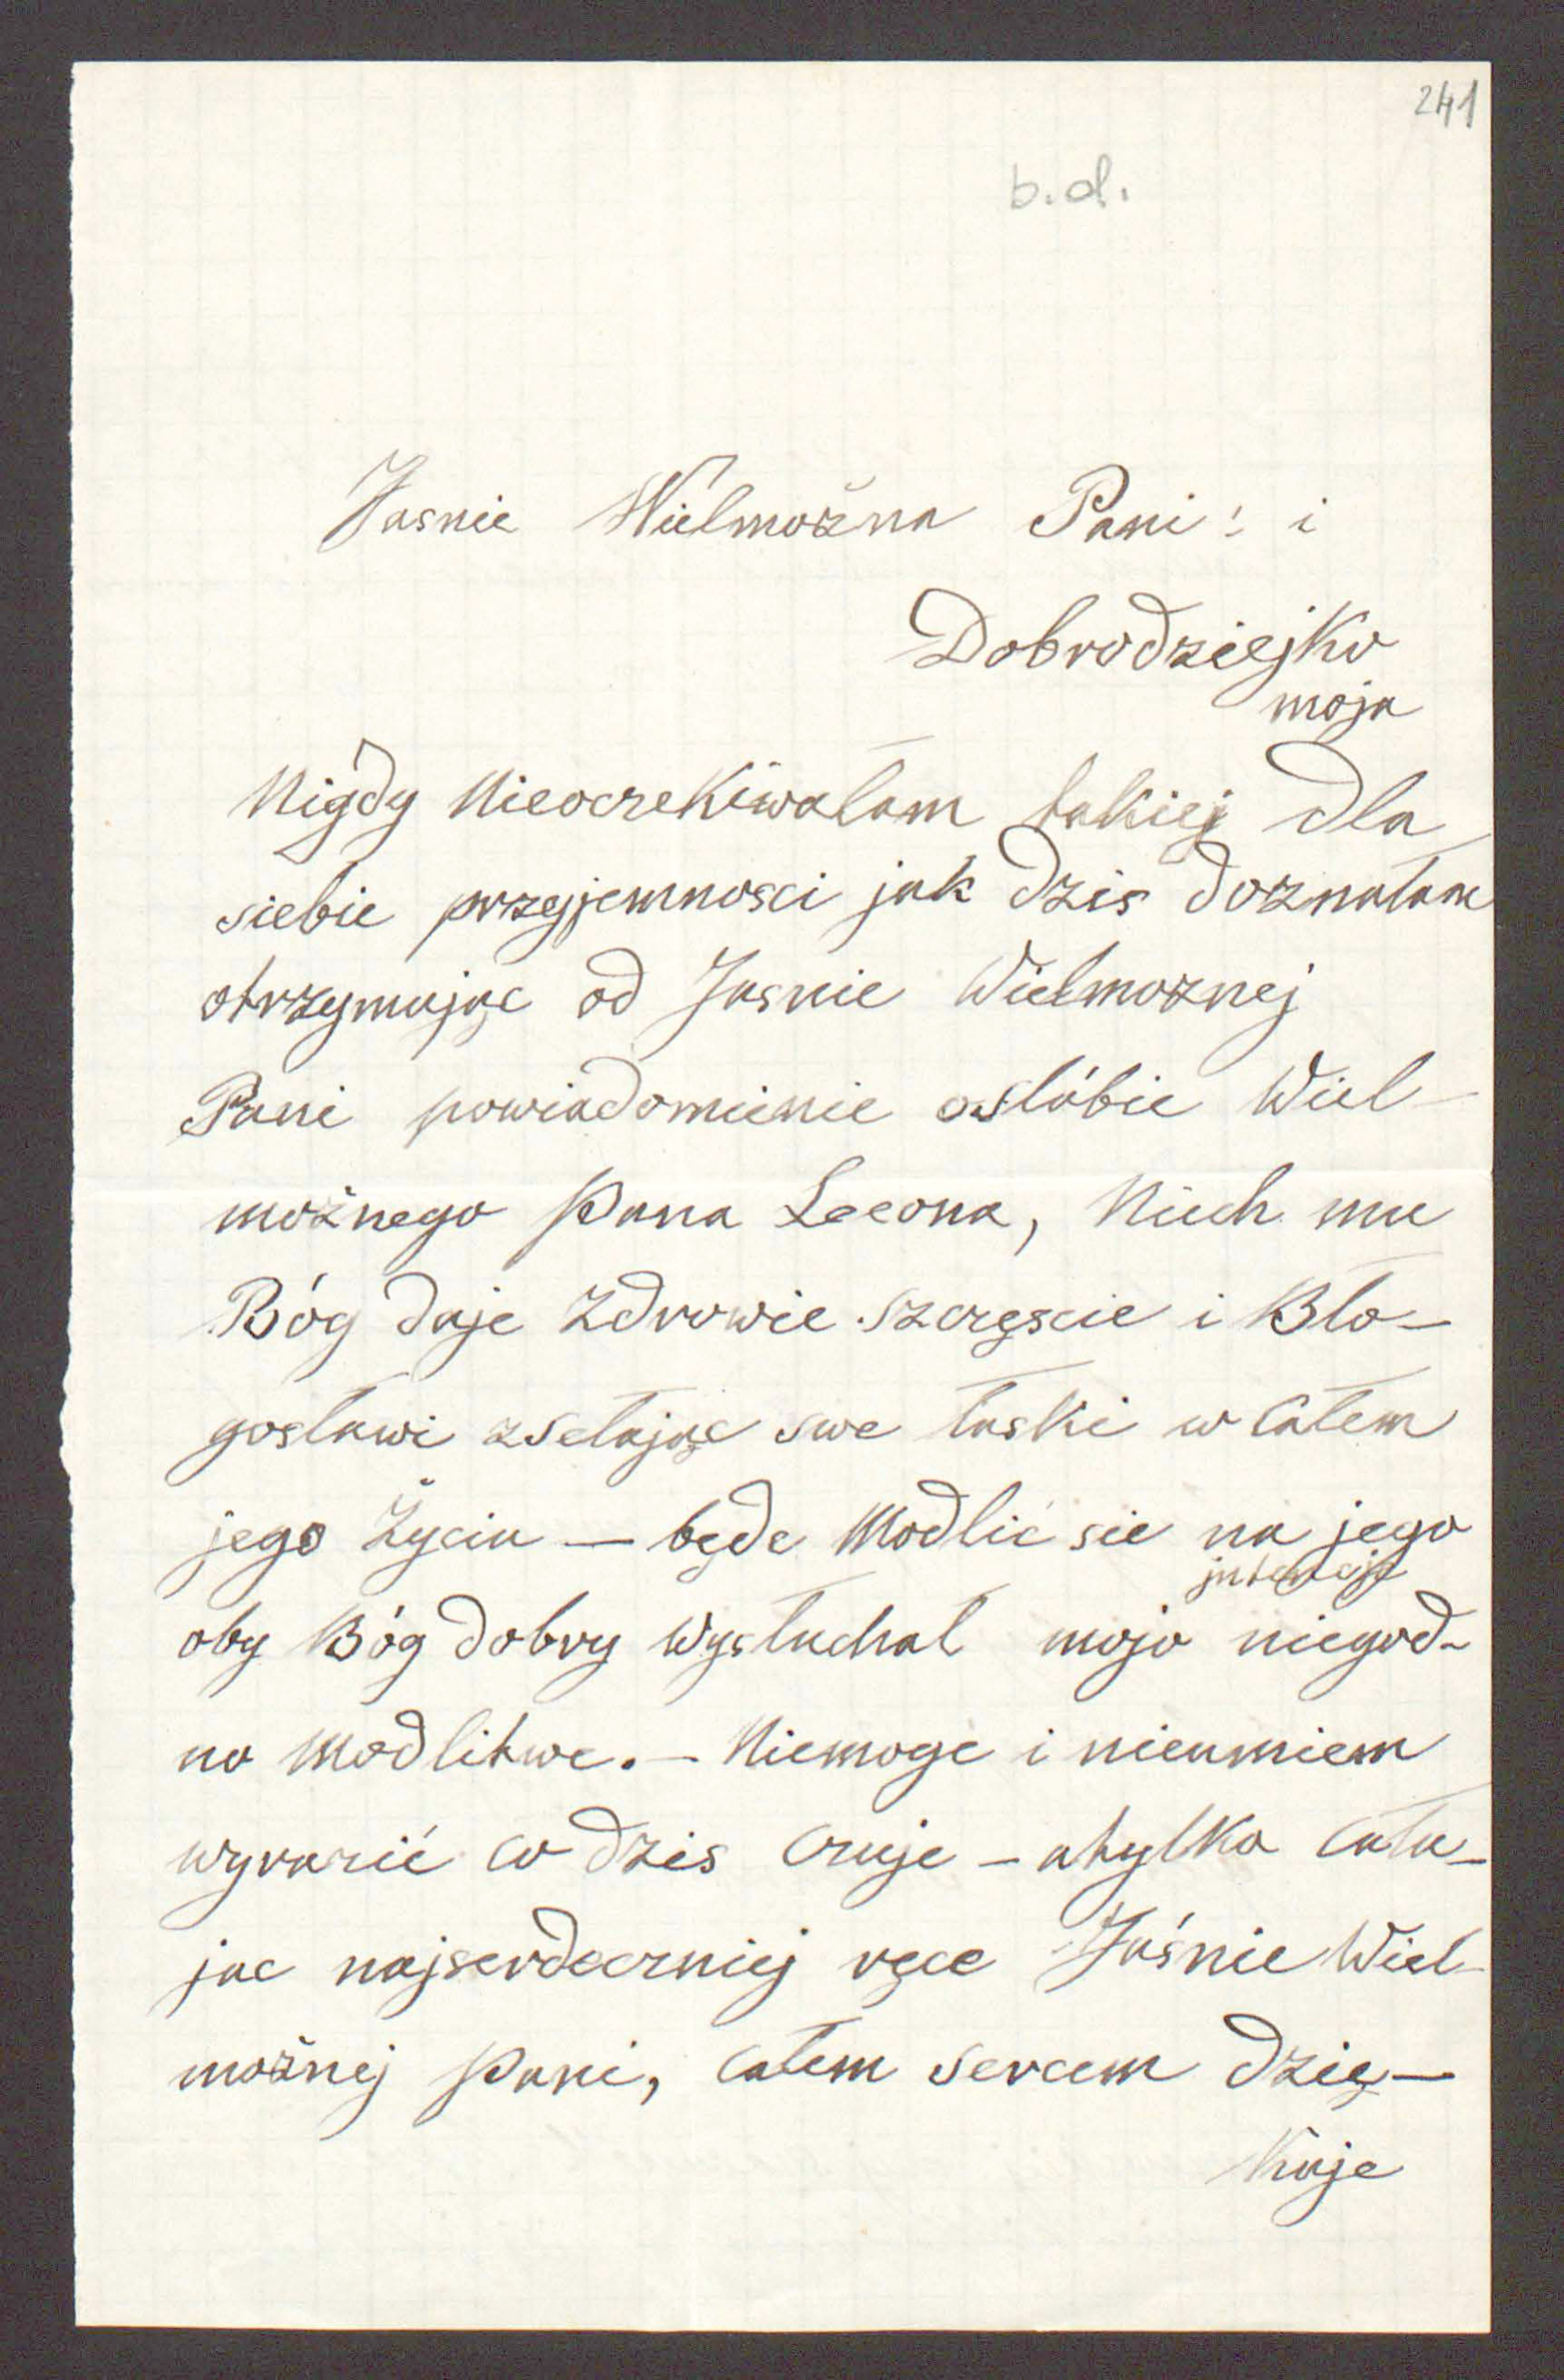 241
b.d.
Jasnie Wielmożna Pani! i
Dobrodziejko
moja
Nigdy Nieoczekiwałam takiej dla
siebie przyjemnosci jak dzis doznałam
otrzymując od Jasnie Wielmoznej
Pani powiadomienie oslóbie Wiel-
możnego Pana Leona, Niech mu
Bóg daje Zdrowie szczęscie i Bło-
gosławi zsełając swe łaski w całem
jego Życiu — będe Modlić sie na jego
jntencje
oby Bóg dobry Wysłuchał mojo niegod-
no Modlitwe. — Niemoge i nieumiem
wyrazić co dzis Czuje — atylko cału-
jac najserdeczniej ręce Jaśnie Wiel-
możnej Pani, całem sercem dzię-
kuje